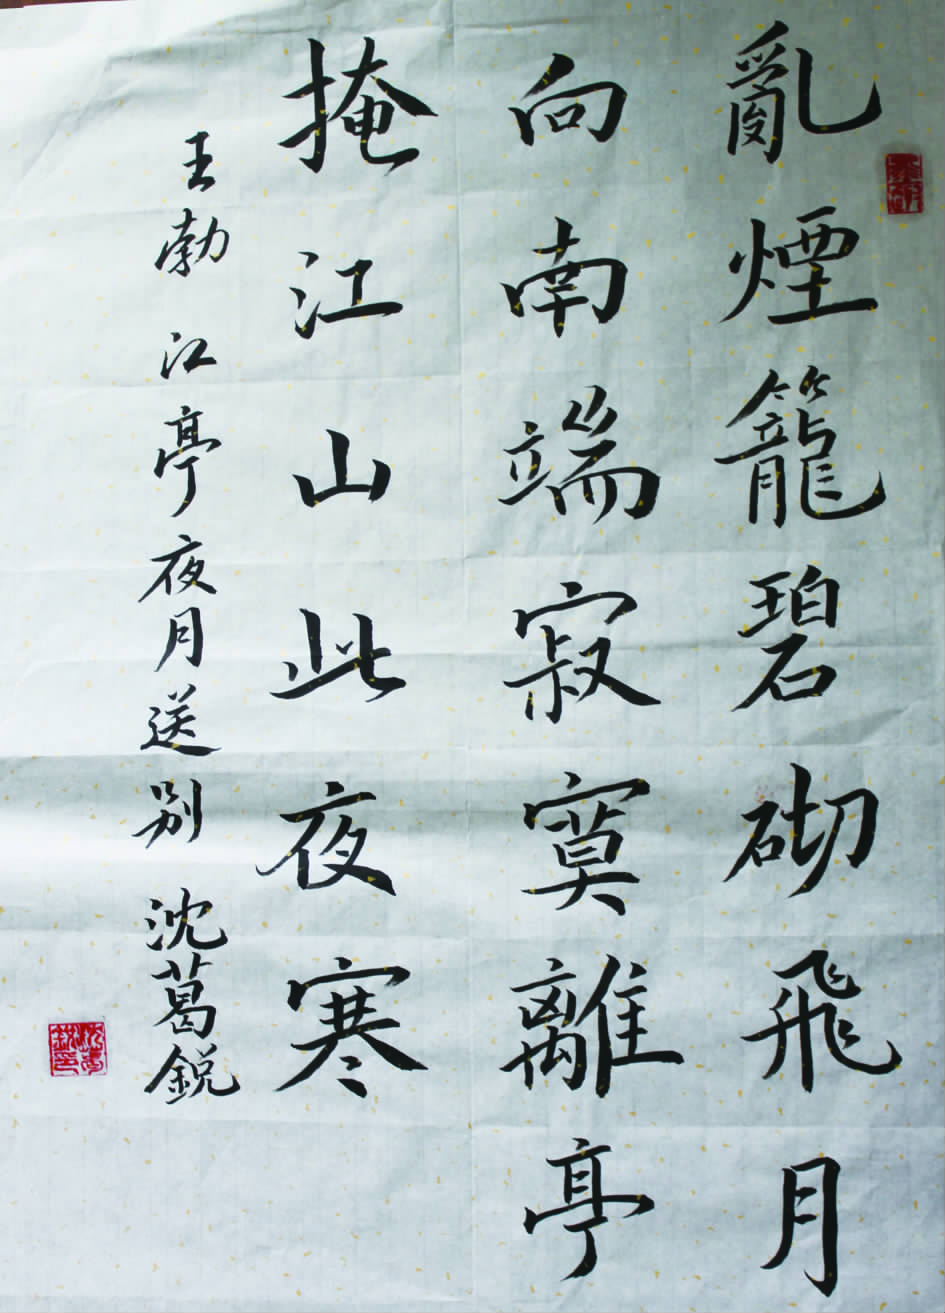 亂煙籠碧砌飛月
向南端寂寞離亭
掩江山此夜寒
王勃 江亭夜月送别 沈葛鋭